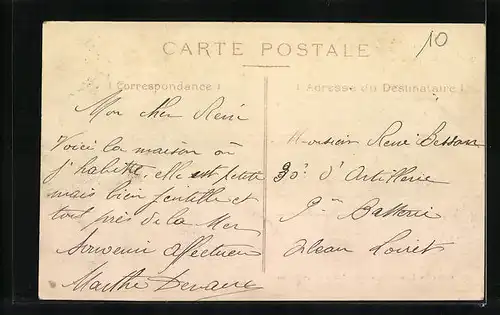 10
CARTE POSTALE
Correspondance
Adresse du Destinataire
Mon cher René
Voici la maison où
j'habite, elle est petite
mais bien gentille et
tout près de la Mer
Souvenir affectueux
Marthe
Monsieur René Besson
30e d'Artillerie
9me Batterie
Orléans Loiret